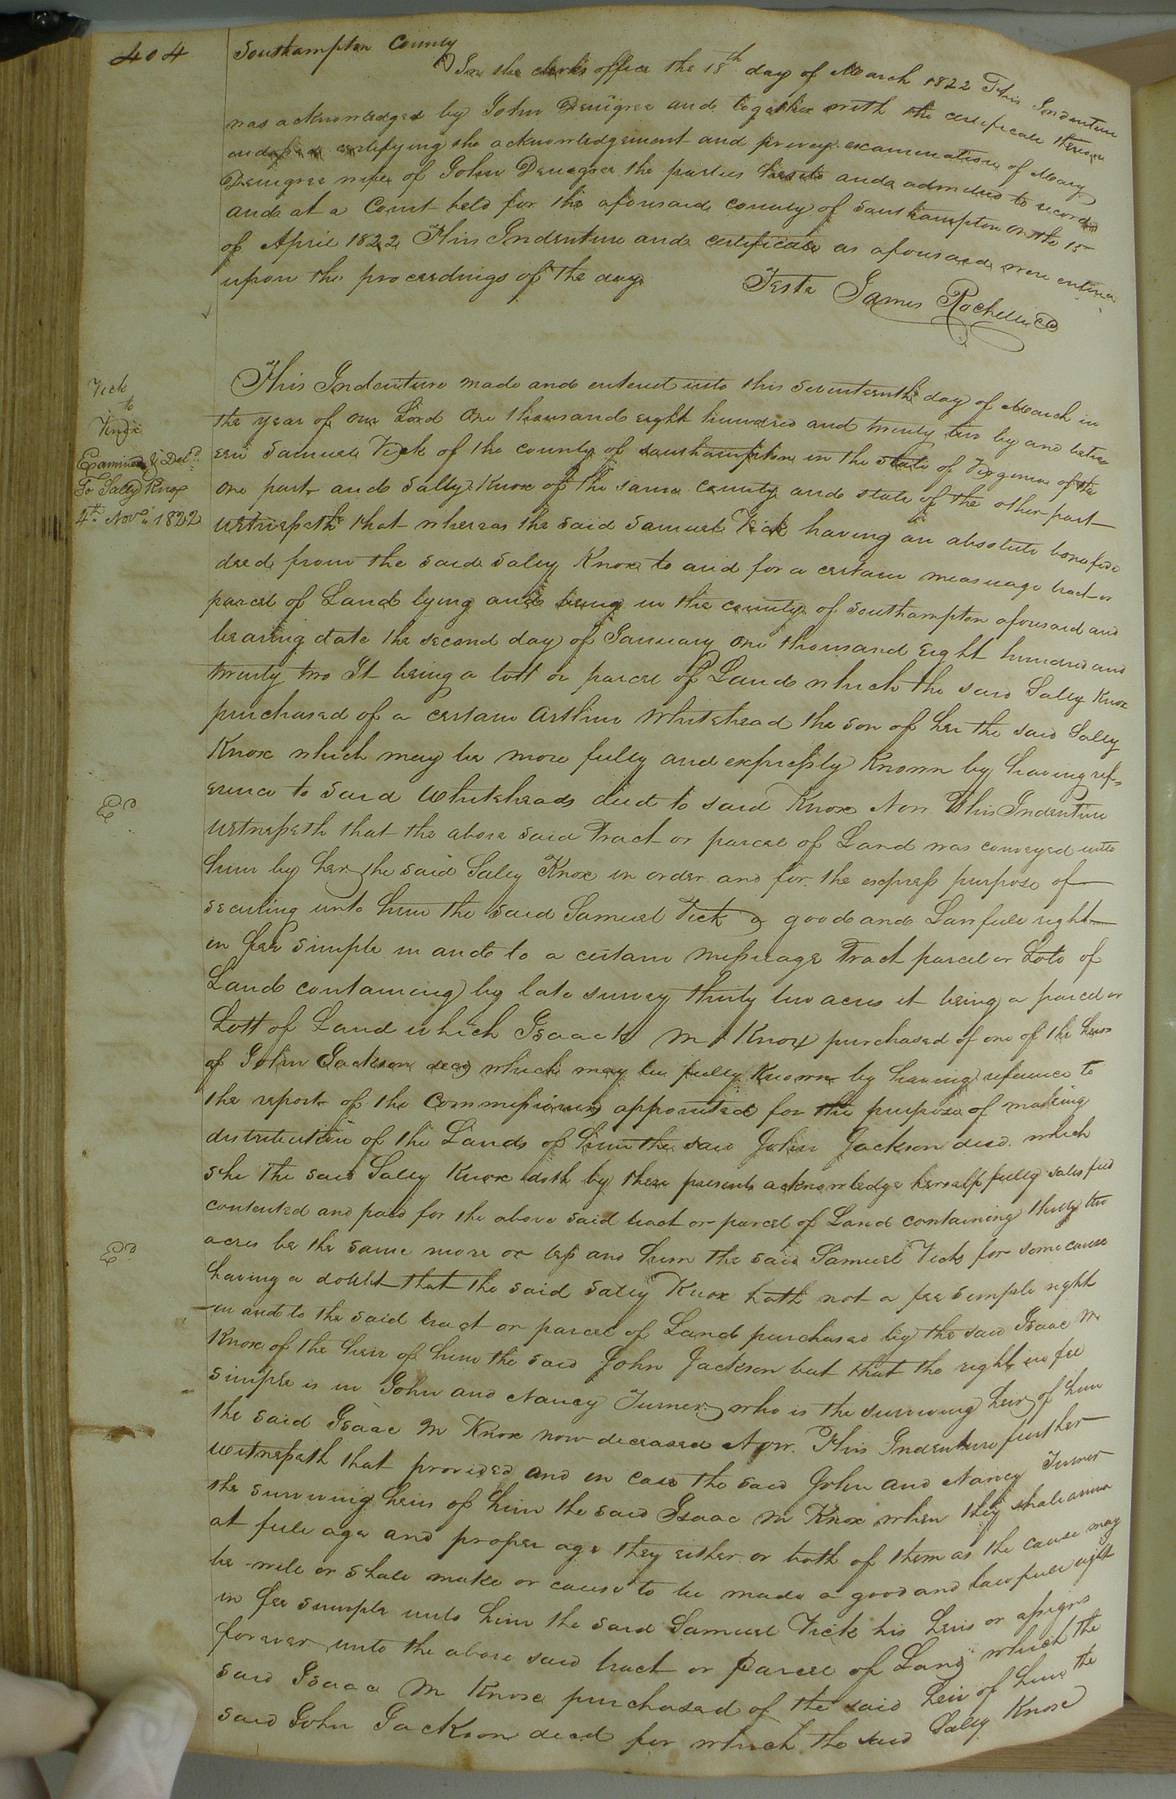 404
Southampton County
In the clerks office the 18th day of March 1822 This Indenture
was acknowledged by John Denigree and together with the certificate thereon
certifying the acknowledgement and privy examination of Mary
Denigree wife of John Denegree the parties hereto and admitted to record
and at a Court held for the aforesaid county of Southampton on the 15
of April 1822 This Indenture and certificate as aforesaid were entered
upon the proceedings of the day
Teste James Rochelle CC
Vick
to
Examined & Deld
To Sally Knox
4th Novr 1822
This Indenture made and entered into this seventeenth day of March in
the year of our Lord One thousand eight hundred and twenty two by and betw
een Samuel Vick of the county of Southampton in the state of Virginia of the
one part and Sally Knox of the same county and state of the other part
Witnesseth that whereas the said Samuel Vick having an absolute bonafide
deed from the said Salley Knox to and for a certain messuage tract or
parcel of Land lying and being in the county of Southampton aforesaid and
bearing date the second day of January one thousand Eight hundred and
twenty two It being a lott or parcel of Land which the said Sally Knox
purchased of a certain Arthur Whitehead the son of her the said Sally
Knox which may be more fully and expressly known by having ref-
erence to said Whiteheads deed to said Knox Now This Indenture
Witnesseth that the above said Tract or parcel of Land was conveyed unto
him by her the said Salley Knox in order and for the express purpose of
securing unto him the said Samuel Vick a good and Lawfull right
in fee simple in and to a certain messuage Tract parcel or Lott of
Land containing by late survey thirty two acres it being a parcel or
Lott of Land which Isaack M Knox purchased of one of the heirs
of John Jackson decd which may be fully known by having reference to
the report of the Commissioners appointed for the purpose of making
distribution of the Lands of him the said John Jackson decd. which
she the said Salley Knox doth by these presents acknowledge herself fully satisfied
contented and paid for the above said tract or parcel of Land containing thirty two
acres be the same more or less and him the said Samuel Vick for some cause
having a doubt that the said Salley Knox hath not a fee simple right
in and to the said tract or parcel of Land purchased by the said Isaac M
Knox of the heir of him the said John Jackson but that the right in fee
simple is in John and Nancy Turner who is the surviving heirs of him
the said Isaac M Knox now deceased Now This Indenture further
Witnesseth that provided and in case the said John and Nancy Turner
the surviving heirs of him the said Isaac M Knox when they shall arrive
at full age and proper age they either or both of them as the cause may
be will or shall make or cause to be made a good and lawfull right
in fee simple unto him the said Samuel Vick his heirs or assigns
forever unto the above said tract or parcel of Land which the
said Isaac M Knox purchased of the said heir of him the
said John Jackson decd for which the said Sally Knox